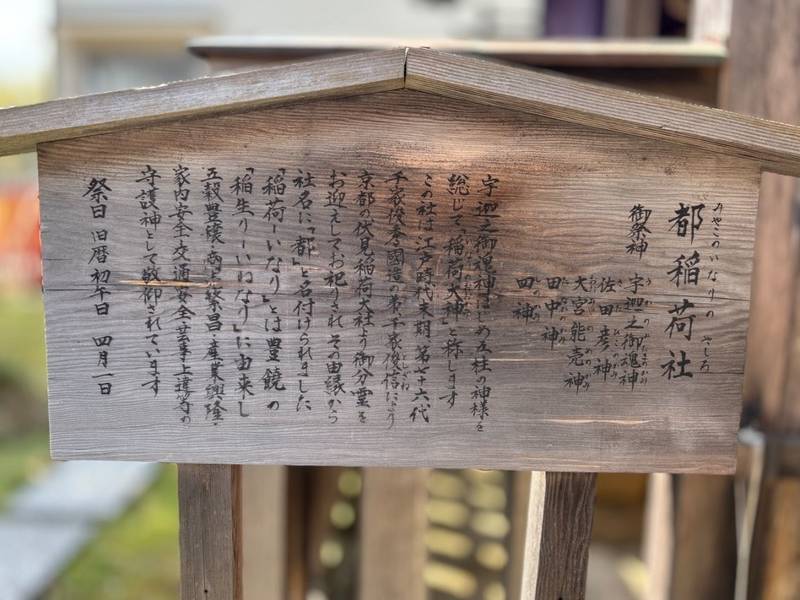 みやこのいなりのやしろ
都稲荷社
御祭神 宇迦之御魂神
佐田彦神
大宮能売神
田中神
四神
宇迦之御魂神はじめ五柱の神様を
総じて「稲荷大神」と称します
この社は江戸時代末期、第七十六代
千家俊秀國造の弟、千家俊信により
京都の伏見稲荷大社より御分霊を
お迎えしてお祀りされ その由縁から
社名に「都」と名付けられました
「稲荷ーいなり」とは豊饒の
「稲生りーいねなり」に由来し
五穀豊穣・商売繁昌・産業興隆・
家内安全・交通安全・芸事上達等の
守護神として敬仰されています
祭日 旧暦初午日 四月一日